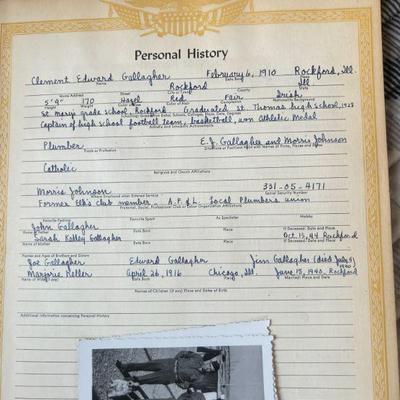 Personal History
Clement Edward Gallagher February 6, 1910 Rockford, Ill.
Rockford Ill
Home Address Street City or Town State
5' 9" 170 Hazel Red Fair Irish
Height Weight Eyes Hair Complexion Nationality Background
St Mary's grade school, Rockford Graduated St Thomas high school, 1928
Captain of high school football team, basketball, won Athletic Medal
Plumber E. J. Gallagher and Morris Johnson
Trade or Profession
Catholic
Religious and Church Affiliations
Morris Johnson 331-05-4171
Where Employed when Entered Service Social Security Number
Former Elk's club member - A.F. & L. Local Plumbers union
Fraternal, Social, Professional Club or Sport Organization Affiliations
Favorite Pastime Favorite Sport As Spectator Hobby
John Gallagher
Name of Father Date Born Place If Deceased: Date and Place
Sarah Kelley Gallagher Oct. 15, 44 Rockford
Name of Mother Date Born Place If Deceased: Date and Place
Joe Gallagher Edward Gallagher Jim Gallagher (died July 9,
Names and Ages of Brothers and Sisters
Marjorie Keller April 26, 1916 Chicago, Ill. June 15, 1940, Rockford
Name of Wife (if any) Date Born Place Married: Place and Date
Names of Children (if any) Place and Dates of Birth
Additional information concerning Personal History